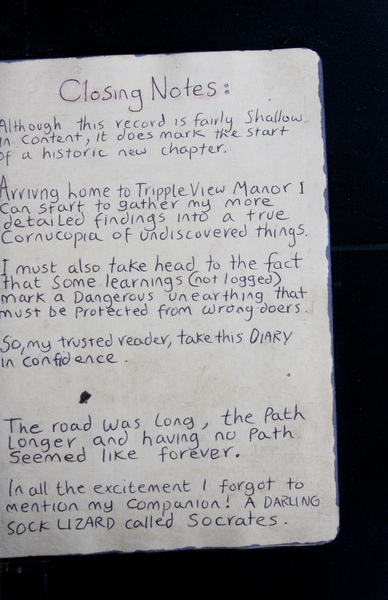 Closing Notes:
Although this record is fairly Shallow
in content, it does mark the start
of a historic new chapter.
Arrivng home to Tripple View Manor I
can start to gather my more
detailed findings into a true
Cornucopia of undiscovered things.
I must also take head to the fact
that some learnings (not logged)
mark a Dangerous unearthing that
must be protected from wrong doers.
So, my trusted reader, take this DIARY
in confidence.
The road was long, the Path
Longer and having no path
seemed like forever.
In all the excitement I forgot to
mention my companion! A DARLING
SOCK LIZARD called Socrates.